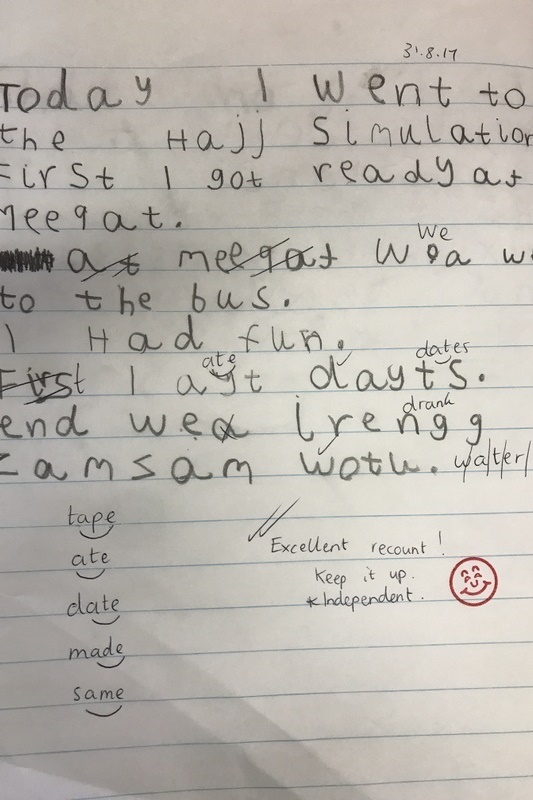 31.8.17
Today I went to
the Hajj Simulation
First I got ready at
Meeqat.
We
at meeqat W a w
to the bus.
I Had fun.
ate dates
First I ayt dayts.
drank
end wea irengg
Zamsam wotu. w/a/t/er/
tape
ate
date
made
same
Excellent recount!
Keep it up.
*Independent.